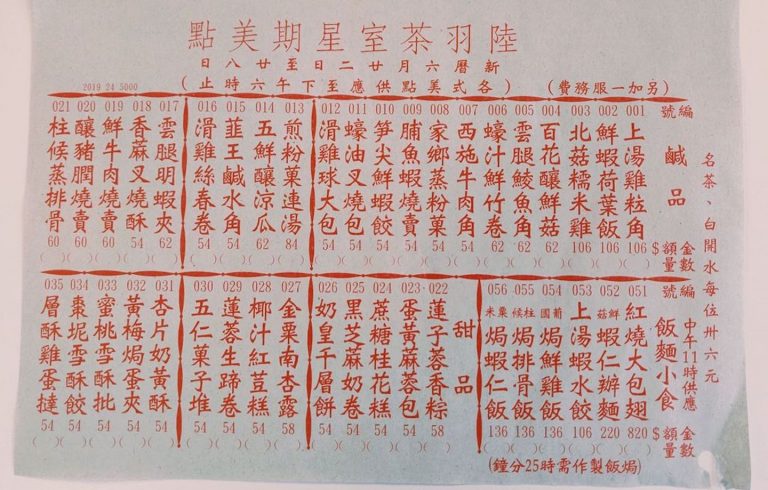 陸羽茶室星期美點
新曆六月廿二日至廿八日
(各式美點供應至下午六時止)
(另加一服務費)
2019 24 5000
名茶、白開水每位卅六元
編號 鹹品 $金額 數量
001 上湯雞粒角 106
002 鮮蝦荷葉飯 106
003 北菇糯米雞 106
004 百花釀鮮菇 62
005 雲腿鯪魚角 62
006 蠔汁鮮竹卷 62
007 西施牛肉角 54
008 家鄉蒸粉菓 54
009 脯魚蝦燒賣 54
010 筍尖鮮蝦餃 54
011 蠔油叉燒包 54
012 滑雞球大包 54
013 煎粉菓連湯 84
014 五鮮釀涼瓜 62
015 韮王鹹水角 54
016 滑雞絲春卷 54
017 雲腿明蝦夾 62
018 香蔴叉燒酥 54
019 鮮牛肉燒賣 60
020 釀豬膶燒賣 60
021 柱候蒸排骨 60
編號 飯麵小食 中午11時供應 $金額 數量
051 紅燒大包翅 820
052 鮮菇蝦仁辦麵 220
053 上湯蝦水餃 106
054 葡國焗鮮雞飯 136
055 柱候焗排骨飯 136
056 粟米焗蝦仁飯 136
(焗飯製作需時25分鐘)
甜品
022 蓮子蓉香粽 58
023 蛋黃蔴蓉包 54
024 蔗糖桂花糕 54
025 黑芝蔴奶卷 54
026 奶皇千層餅 54
027 金粟南杏露 58
028 椰汁紅荳糕 54
029 蓮蓉生蹄卷 54
030 五仁菓子堆 54
031 杏片奶黃酥 54
032 黃梅焗蛋夾 54
033 蜜桃雪酥批 54
034 棗坭雪酥餃 54
035 層酥雞蛋撻 54